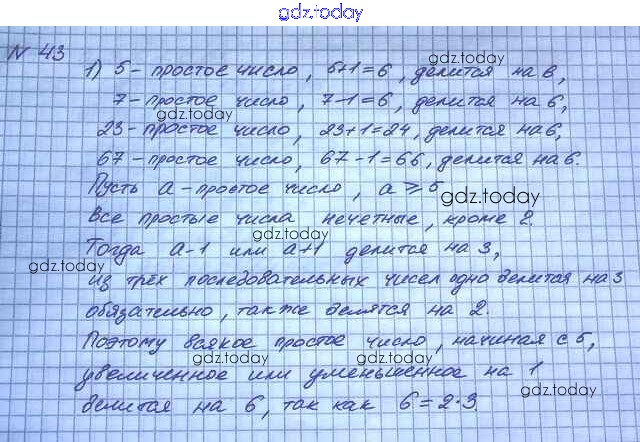 gdz.today
№ 43 gdz.today
1) 5 - простое число, 5+1=6, делится на 6,
7 - простое число, 7-1=6, делится на 6,
gdz.today gdz.today
23 - простое число, 23+1=24, делится на 6,
67 - простое число, 67-1=66, делится на 6.
Пусть a - простое число, a ⩾ 5
gdz.today
Все простые числа нечетные, кроме 2.
gdz.today
Тогда a-1 или a+1 делится на 3,
gdz.today
из трёх последовательных чисел одно делится на 3
обязательно, также делятся на 2.
Поэтому всякое простое число, начиная с 5,
gdz.today gdz.today
увеличенное или уменьшенное на 1
gdz.today
делится на 6, так как 6=2·3.